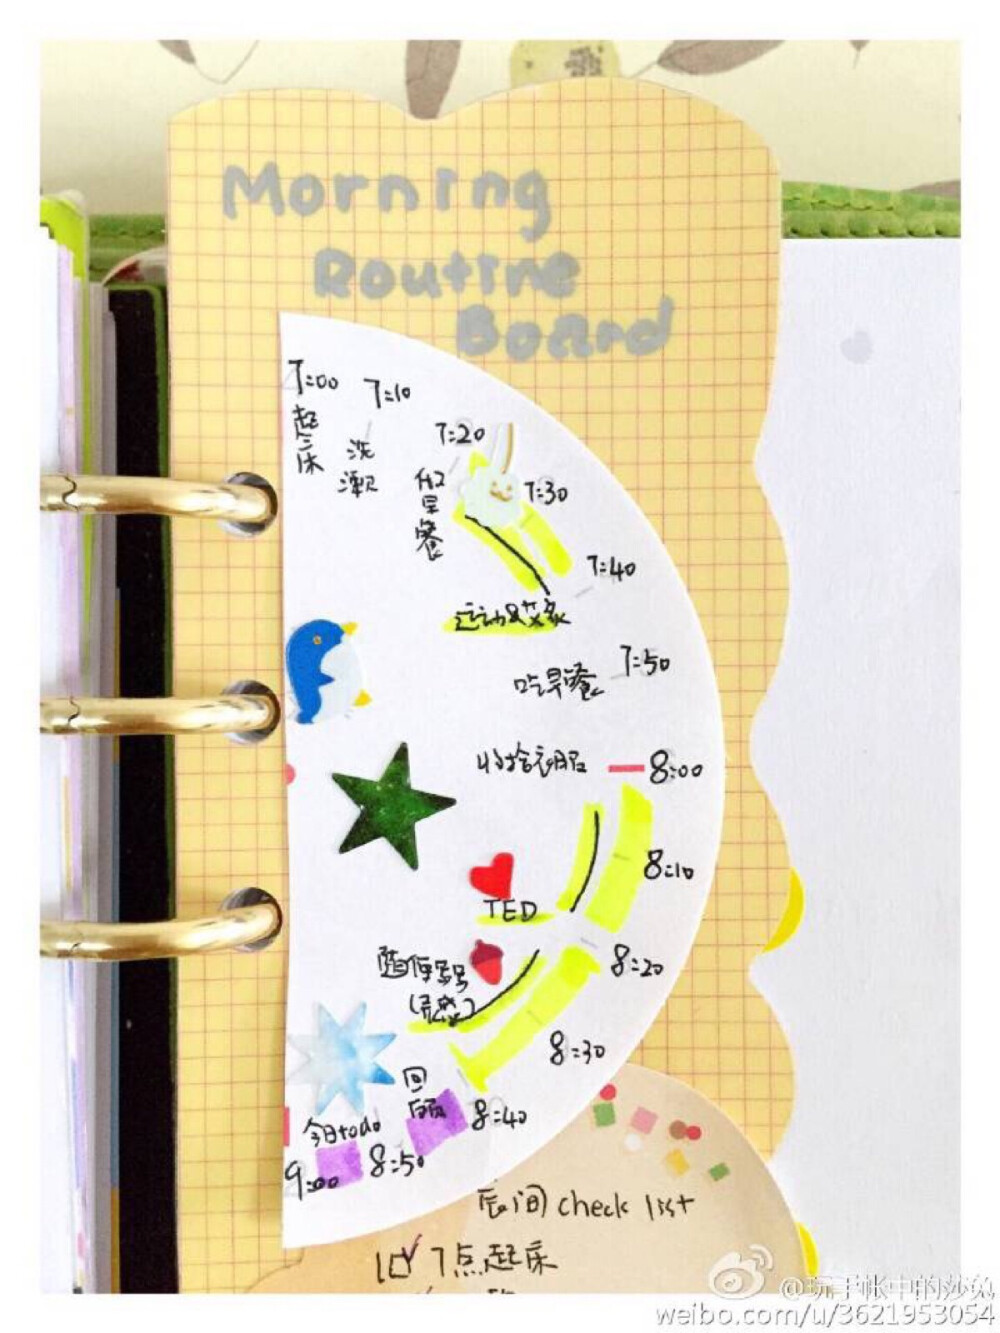 Morning
Routine
Board
7:00
起床
7:10
洗漱
7:20
做早餐
7:30
运动&
7:40
吃早餐
7:50
收拾衣服
8:00
8:10
TED
8:20
随便写写
8:30
回顾
8:40
今日todo
8:50
9:00
晨间 check list
7点起床
@玩手帐中的莎兔
weibo.com/u/3621953054